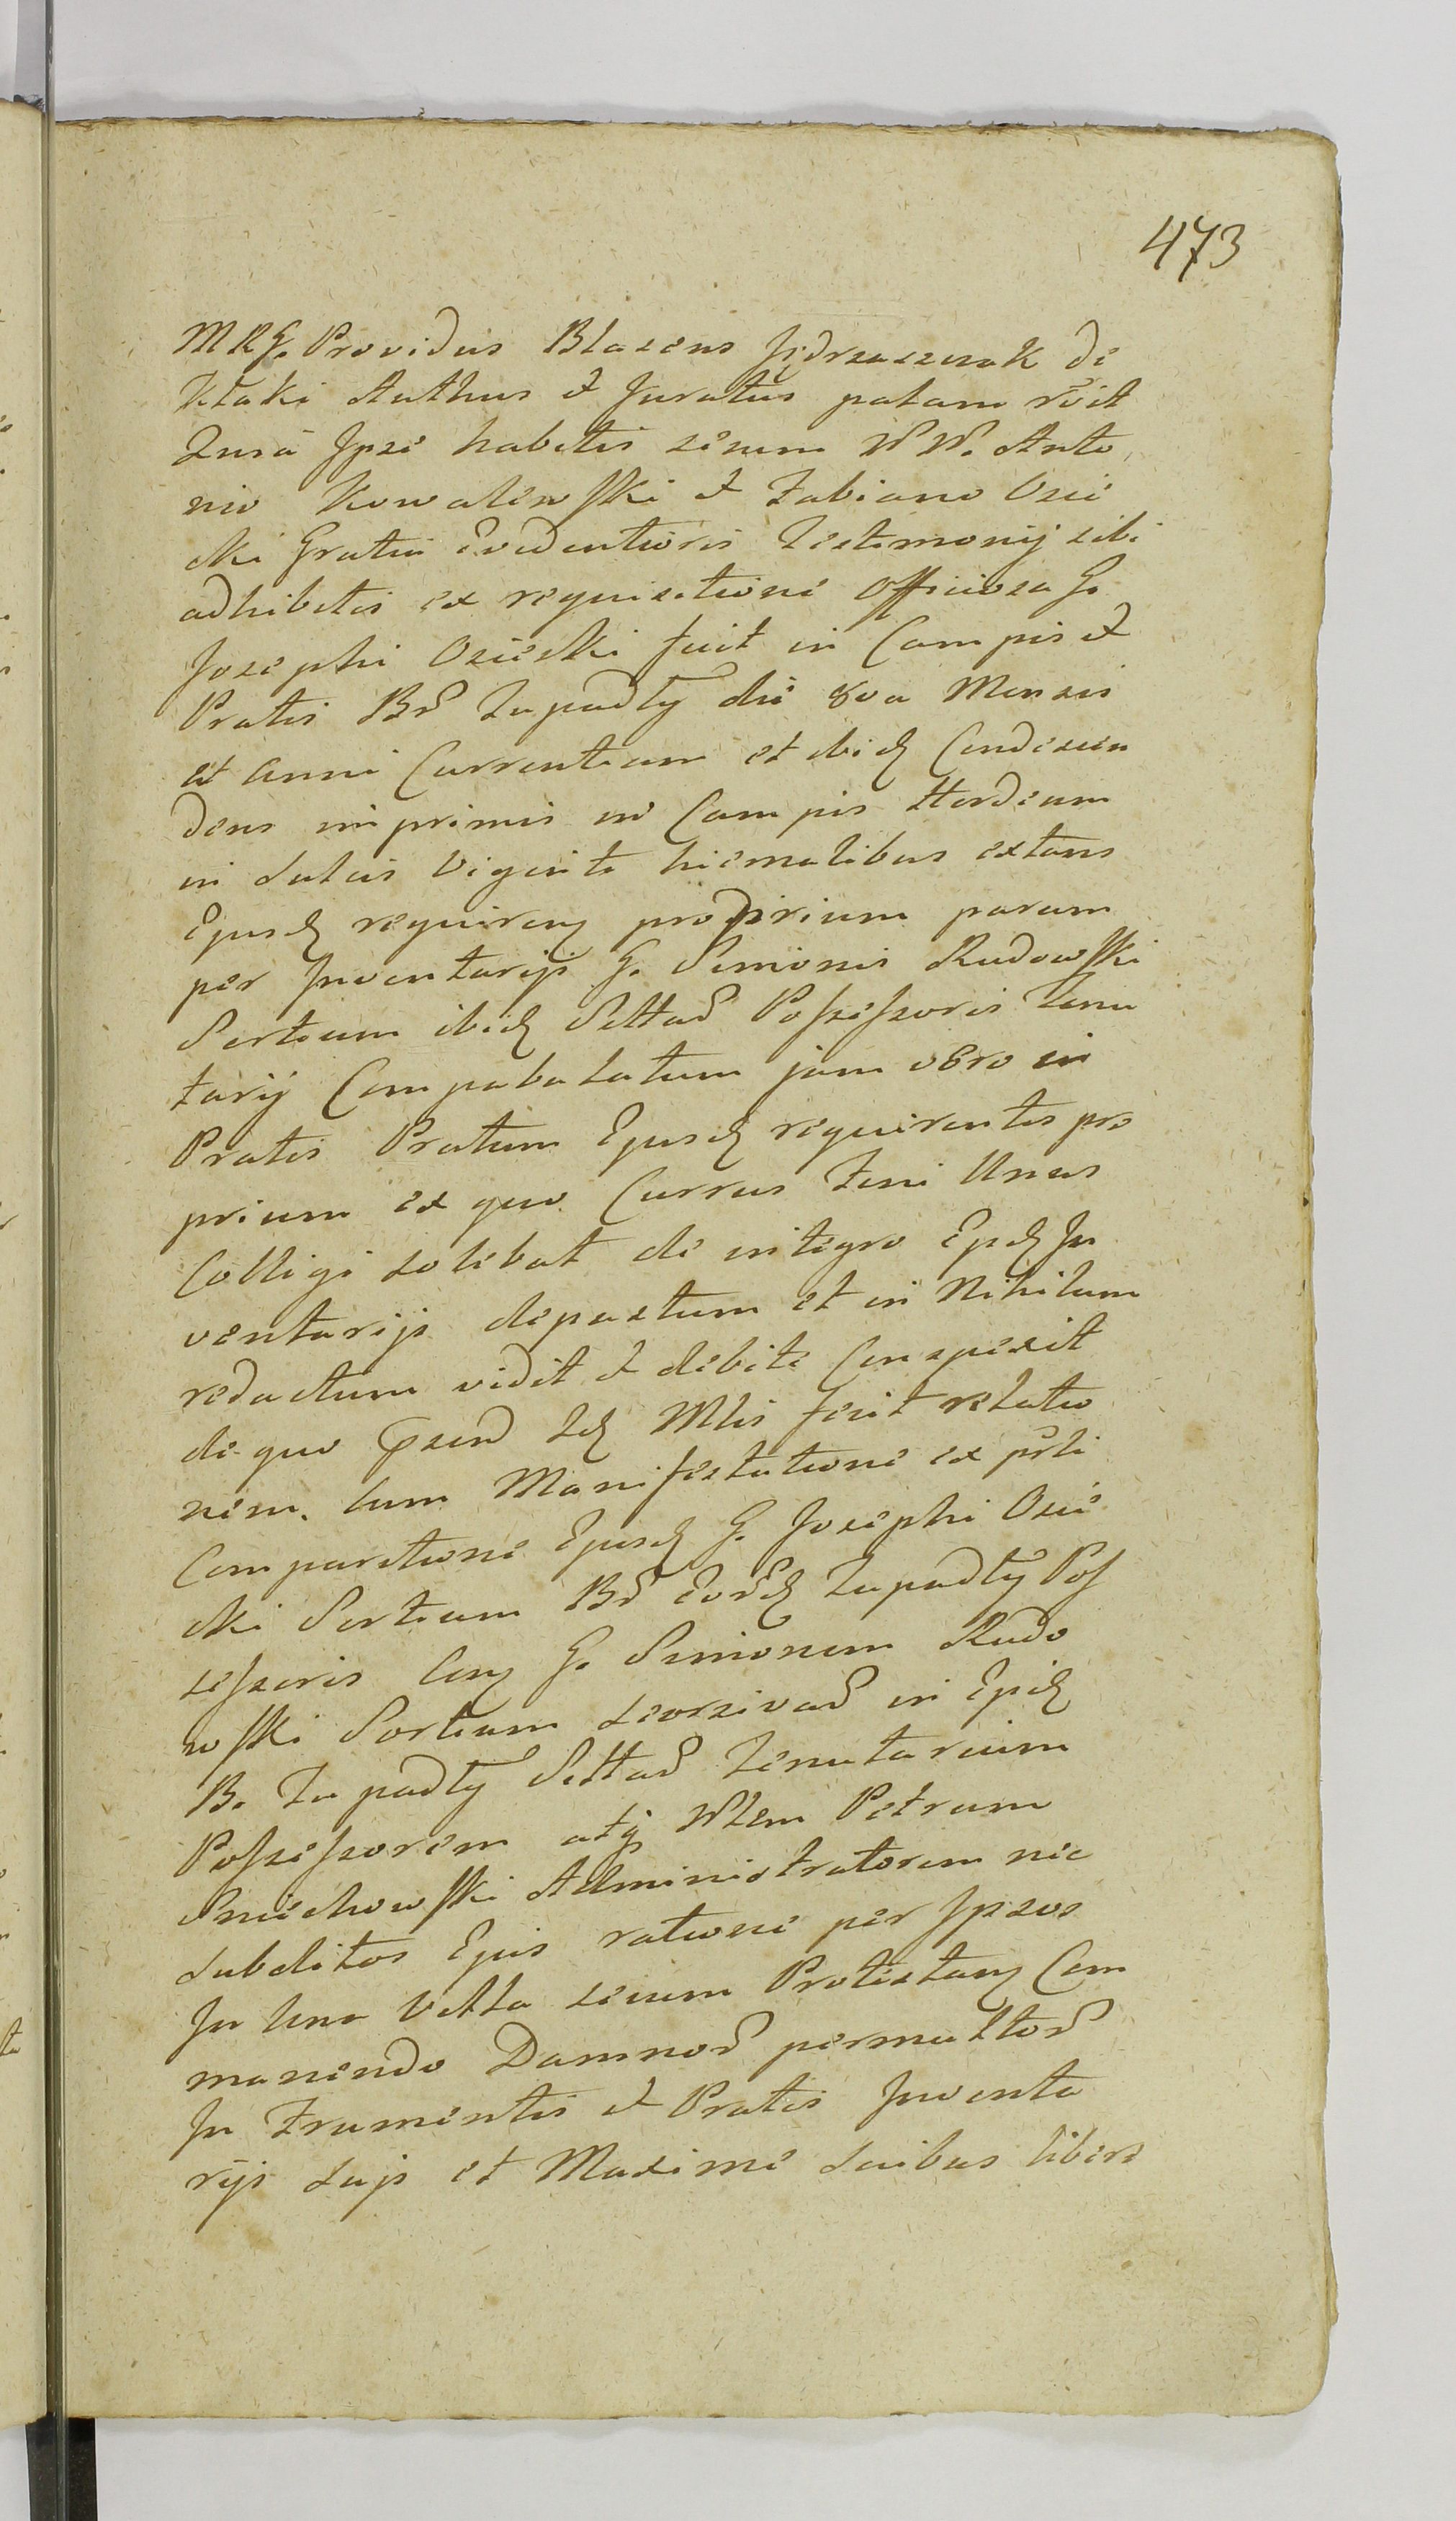 473
MRG. Providus Blasius Jędrzaszczak de
Kłaki Authus et Juratus palam rōit
Qusā Ipse habitis secum WW. Anto
nio Kowalewski et Fabiano Osie
cki Gratia Evidentioris Testimonij sibi
adhibitis ex requisitione Officiosa G.
Josephi Osiecki fuit in Campis et
Pratis Br Zapadły die 8va Mensis
et Anni Currentium et ibidē Condescen
dens imprimis in Campis Hordeum
in Sulcis Viginti hiemalibus extans
Ejusdē requiren proprium parum
per Inventarijs G. Simonis Rudowski
Sortium ibidē Possessoris Tenu
tarij Compabulatum jam vero in
Pratis Pratum Ejusdē requirentis pro
prium ex quo Currus Feni Unus
Colligi solebat de integro Epdē In
ventarijs depastum et in Nihilum
redactum vidit et debite Conspexit
de quo Idē Mlis fecit relatio
nem. Cum Manifestatione ex psli
Comparitione Ejusdē G. Josephi Osie
cki Sortium Br Eordē Zapadły Pos
sessoris Con G. Simonem Rudo
wski Sortium seorsivar in Epdē
B. Zapadły Tenutarium
Possessorem atq Wlem Petrum
Sniechowski Administratorem nec
subditos Ejus ratione per Ipsos
In Una Villa secum Protestan Com
manendo Damnor permultor
In Frumentis et Pratis Inventa
rijs Sujs et Maxime Suibus libere